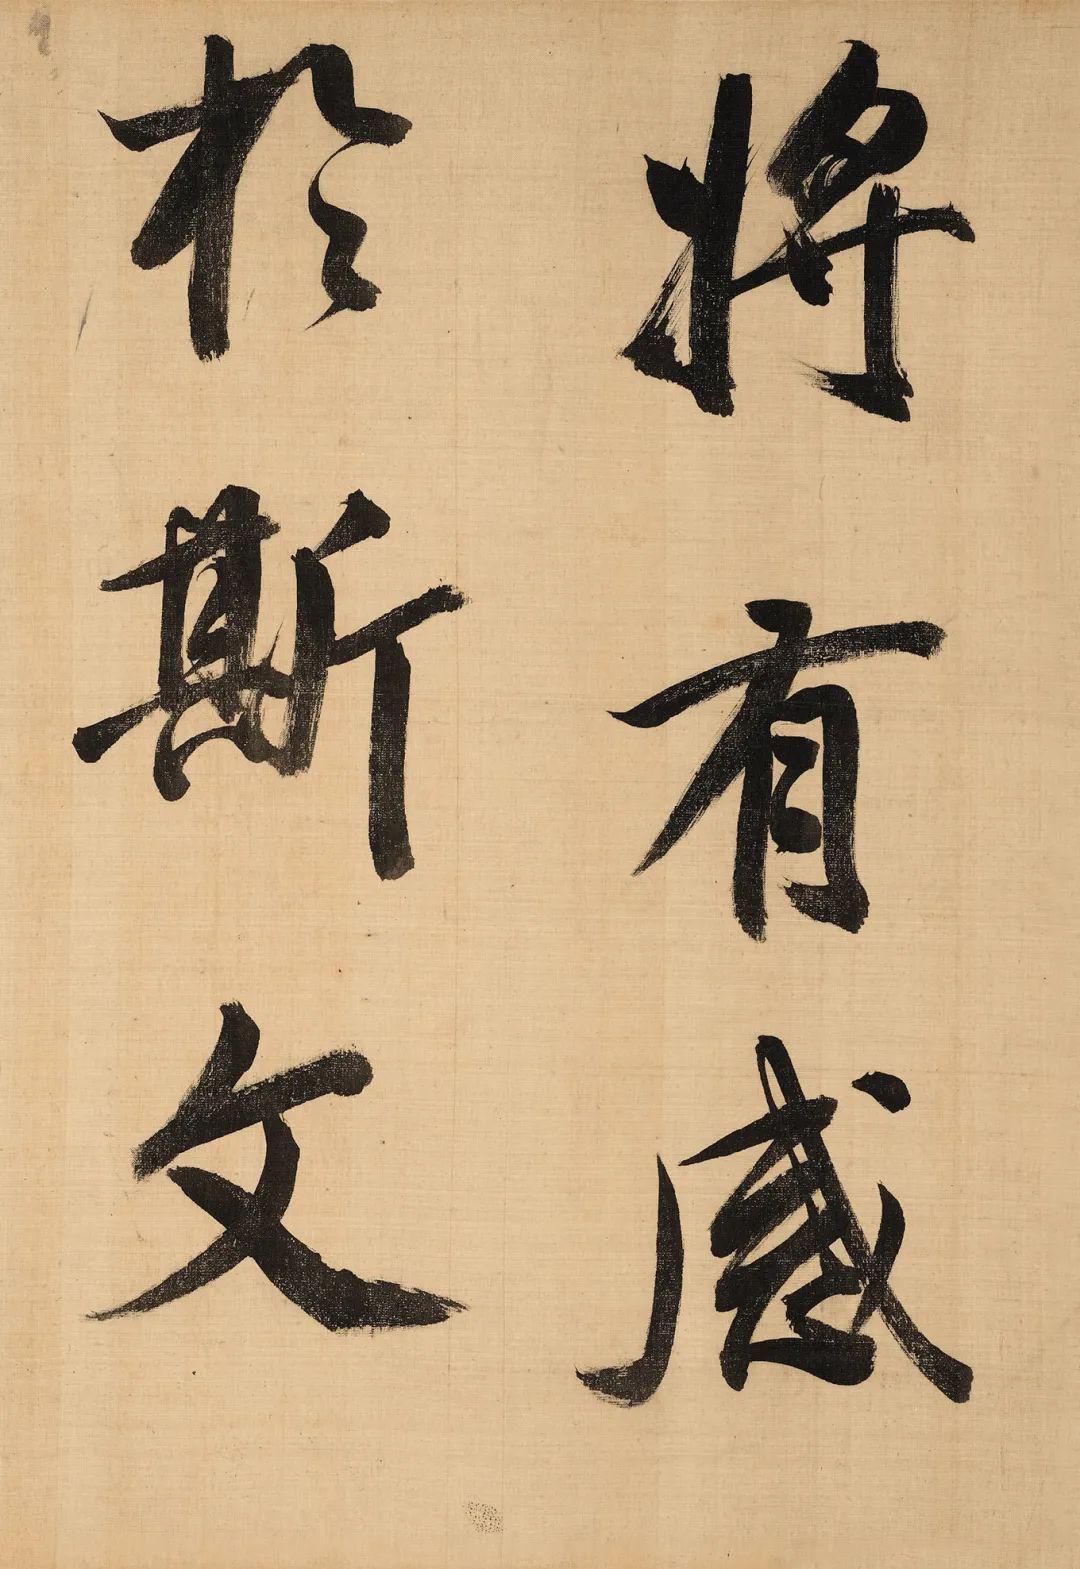 將有感
於斯文